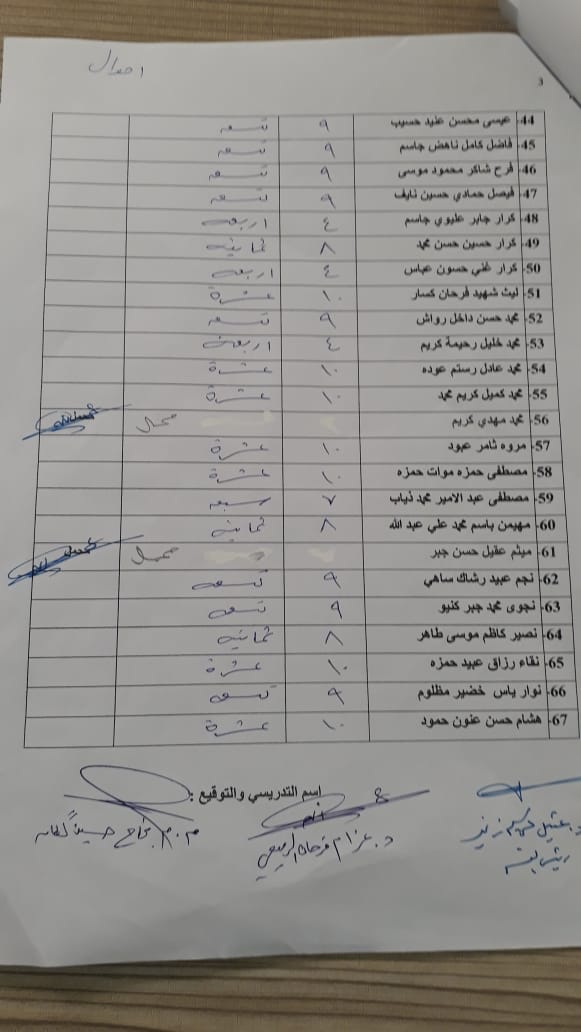 احوال
3
44- عيسى محسن عنيد حسيب ٩ تسعه
45- فاضل كامل ناهض جاسم ٩ تسعه
46- فرح شاكر محمود موسى ٩ تسعه
47- فيصل حمادي حسين نايف ٩ تسعه
48- كرار جابر عليوي جاسم ٤ اربعه
49- كرار حسين حسن محمد ٨ ثمانيه
50- كرار غني حسون عباس ٤ اربعه
51- ليث شهيد فرحان كسار ١٠ عشرة
52- محمد حسن داخل رواش ٩ تسعه
53- محمد خليل رحيمة كريم ٤ اربعه
54- محمد عادل رستم عوده ١٠ عشرة
55- محمد كميل كريم محمد ١٠ عشرة
56- محمد مهدي كريم
57- مروه ثامر عبود ١٠ عشرة
58- مصطفى حمزه موات حمزه ١٠ عشرة
59- مصطفى عبد الامير محمد ذياب ٧ سبعه
60- مهيمن باسم محمد علي عبد الله ٨ ثمانيه
61- ميثم عقيل حسن جبر
62- نجم عبيد رشاك ساهي ٩ تسعه
63- نجوى محمد جبر كنيو ٩ تسعه
64- نصير كاظم موسى طاهر ٨ ثمانيه
65- نقاء رزاق عبيد حمزه ١٠ عشرة
66- نوار ياس خضير مظلوم ٩ تسعه
67- هشام حسن عنون حمود ١٠ عشرة
اسم التدريسي والتوقيع :